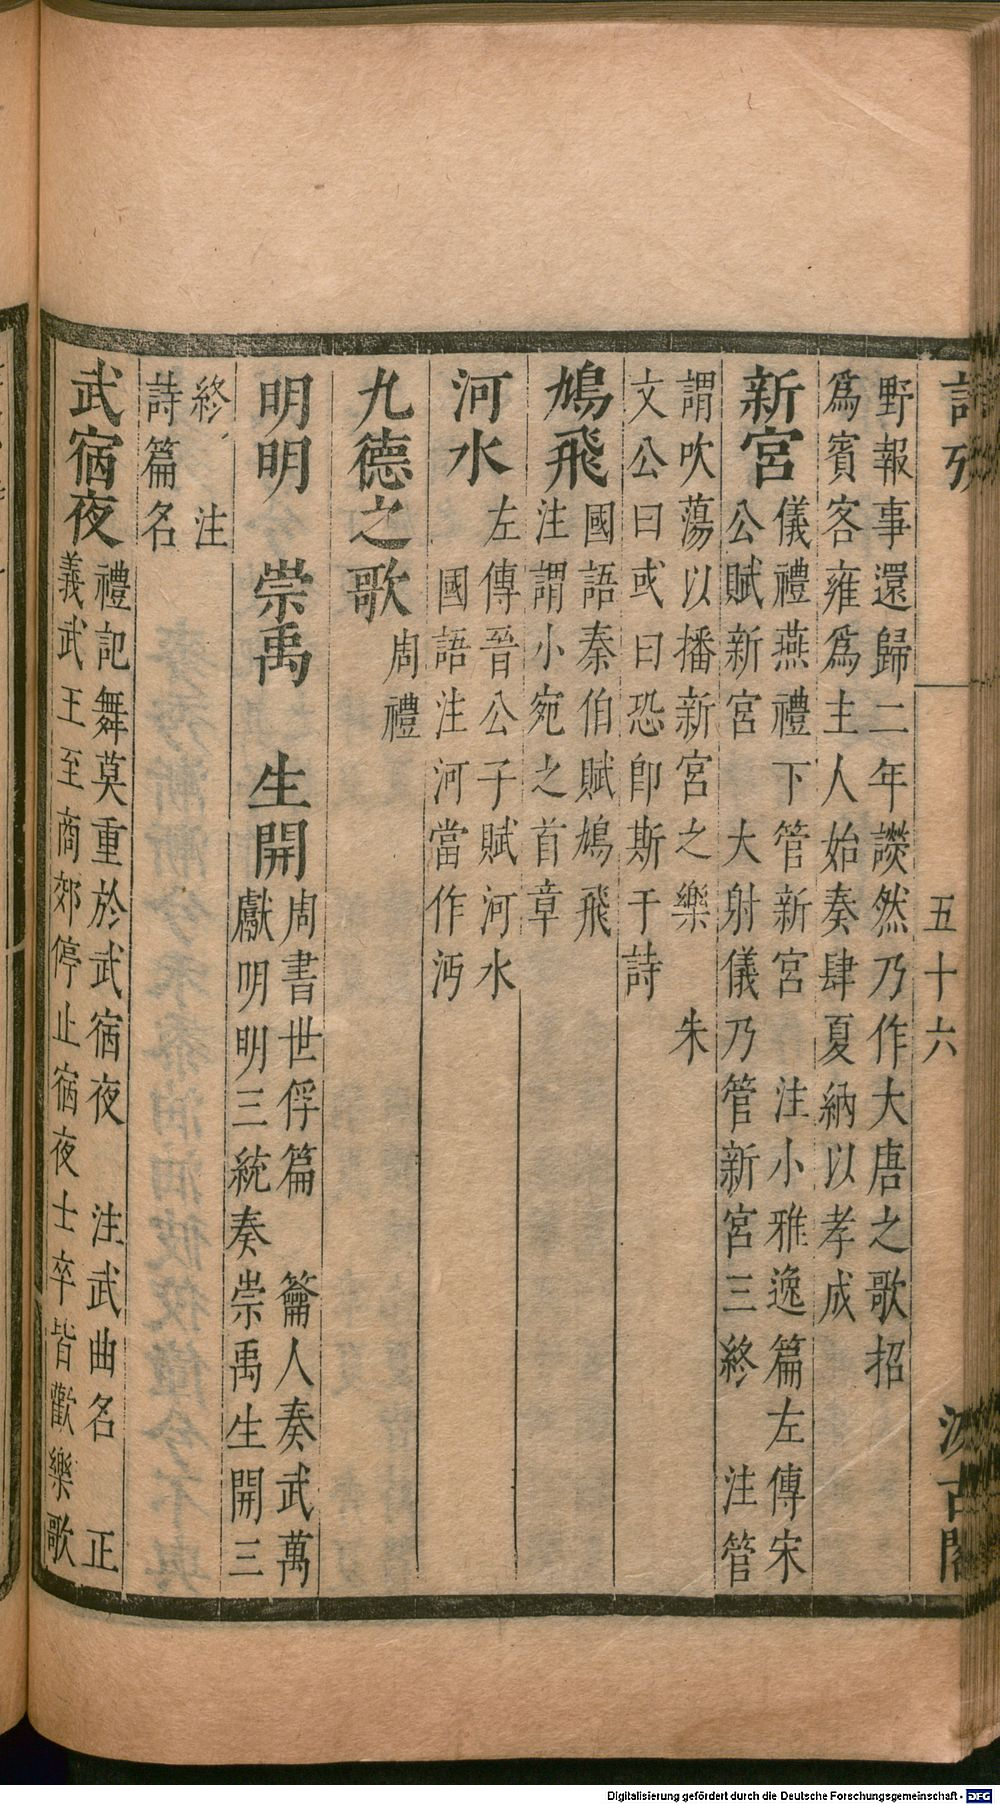 五十六
野報事還歸二年談然乃作大唐之歌招
爲賓客雍爲主人始奏肆夏納以孝成
新宮 儀禮燕禮下管新宮 注小雅逸篇左傳宋
公賦新宮 大射儀乃管新宮三終 注管
謂吹蕩以播新宮之樂 朱
文公曰或曰恐卽斯于詩
鳩飛 國語秦伯賦鳩飛
注謂小宛之首章
河水 左傳晉公子賦河水
國語注河當作沔
九德之歌 周禮
明明 崇禹 生開 周書世俘篇 籥人奏武萬
獻明明三統奏崇禹生開三
終 注
詩篇名
武宿夜 禮記舞莫重於武宿夜 注武曲名 正
義武王至商郊停止宿夜士卒皆歡樂歌
Digitalisierung gefördert durch die Deutsche Forschungsgemeinschaft - DFG